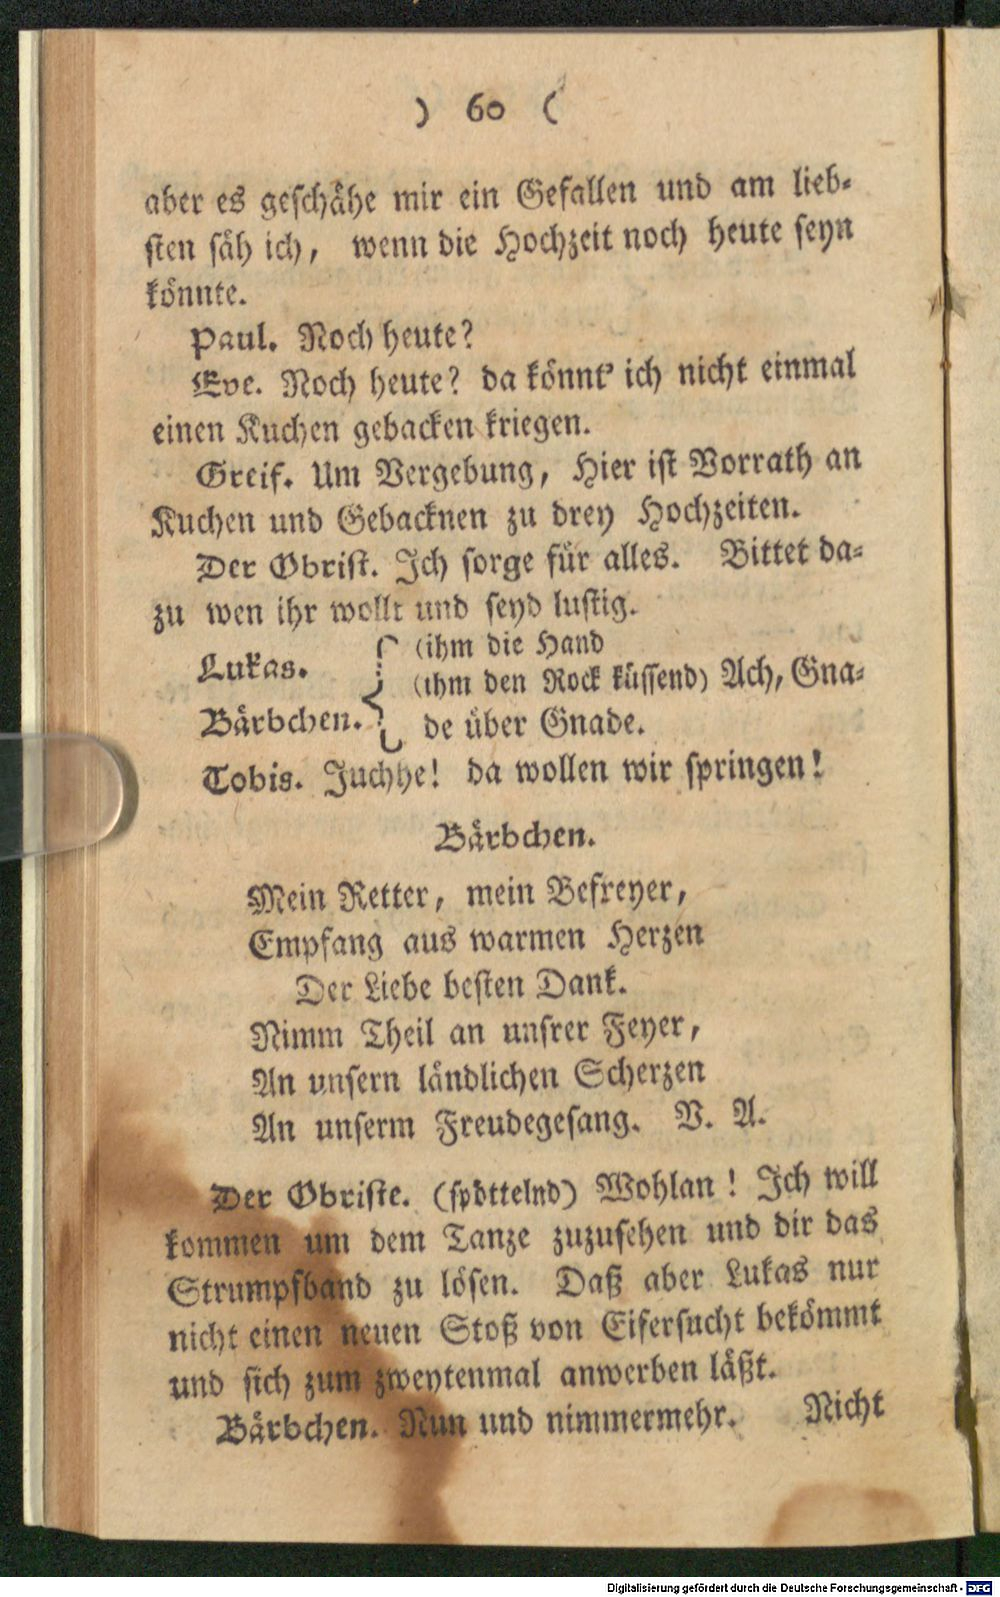 ) 60 (
aber es geschähe mir ein Gefallen und am lieb-
sten säh ich, wenn die Hochzeit noch heute seyn
könnte.
Paul. Noch heute?
Eve. Noch heute? da könnt' ich nicht einmal
einen Kuchen gebacken kriegen.
Greif. Um Vergebung, Hier ist Vorrath an
Kuchen und Gebacknen zu drey Hochzeiten.
Der Obrist. Ich sorge für alles. Bittet da-
zu wen ihr wollt und seyd lustig.
Lukas. (ihm die Hand
(ihm den Rock küssend) Ach, Gna-
Bärbchen. de über Gnade.
Tobis. Juchhe! da wollen wir springen!
Bärbchen.
Mein Retter, mein Befreyer,
Empfang aus warmen Herzen
Der Liebe besten Dank.
Nimm Theil an unsrer Feyer,
An unsern ländlichen Scherzen
An unserm Freudegesang. V. A.
Der Obriste. (spöttelnd) Wohlan! Ich will
kommen um dem Tanze zuzusehen und dir das
Strumpfband zu lösen. Daß aber Lukas nur
nicht einen neuen Stoß von Eifersucht bekömmt
und sich zum zweytenmal anwerben läßt.
Bärbchen. Nun und nimmermehr. Nicht
Digitalisierung gefördert durch die Deutsche Forschungsgemeinschaft - DFG